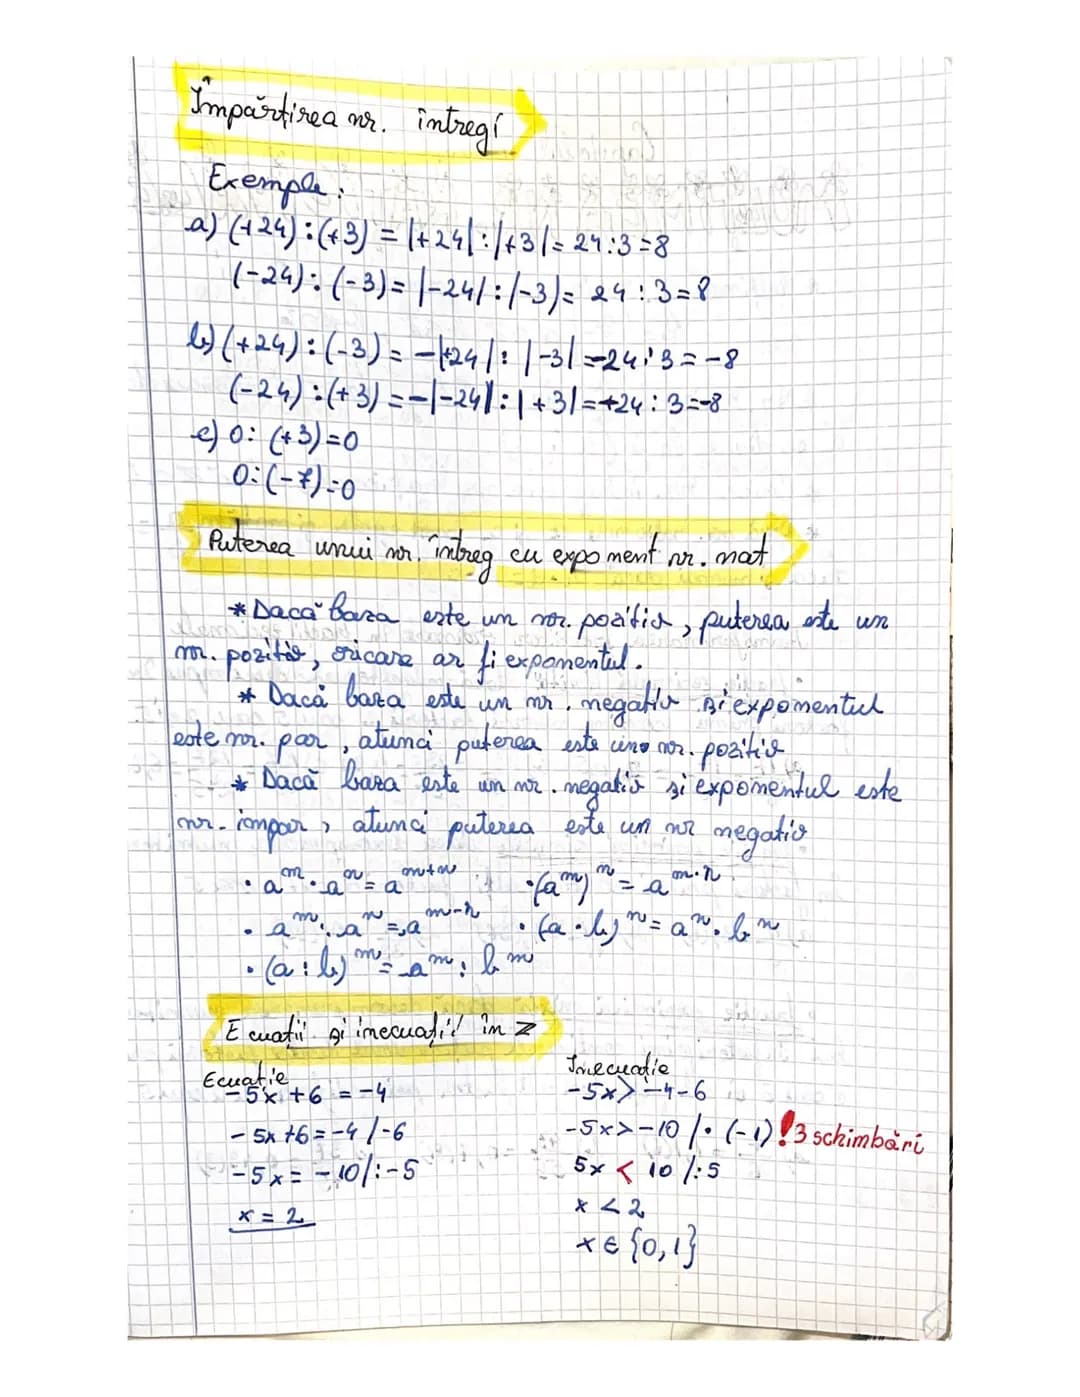 Împărțirea nr. întregi
Exemple:
a) (+24):(+3) = |+24|:|+3|= 24:3=8
(-24):(-3)= |-24|:|-3|= 24:3=8
b) (+24):(-3) = -|+24|:|-3|=-24:3=-8
(-24):(+3)=-|-24|:|+3|=-+24:3=-8
c) 0:(+3)=0
0:(-7)=0
Puterea unui nr. întreg cu exponent nr. nat
* Dacă baza este un nr. pozitiv, puterea este un
nr. pozitiv, oricare ar fi exponentul.
* Dacă baza este un nr. negativ și exponentul
este nr. par, atunci puterea este un nr. pozitiv
* Dacă baza este un nr. negativ și exponentul este
nr. impar, atunci puterea este un nr negativ
• a^m · a^n = a^m+n • (a^m)^n = a^m·n
• a^m : a^n = a^m-n • (a·b)^n = a^n · b^n
• (a:b)^m = a^m : b^m
Ecuații și inecuații în Z
Ecuație
-5x+6=-4
-5x+6=-4 /-6
-5x=-10/:-5
x=2
Inecuație
-5x>-4-6
-5x>-10 /·(-1) ! 3 schimbări
5x < 10 /:5
x < 2
x ∈ {0,1}